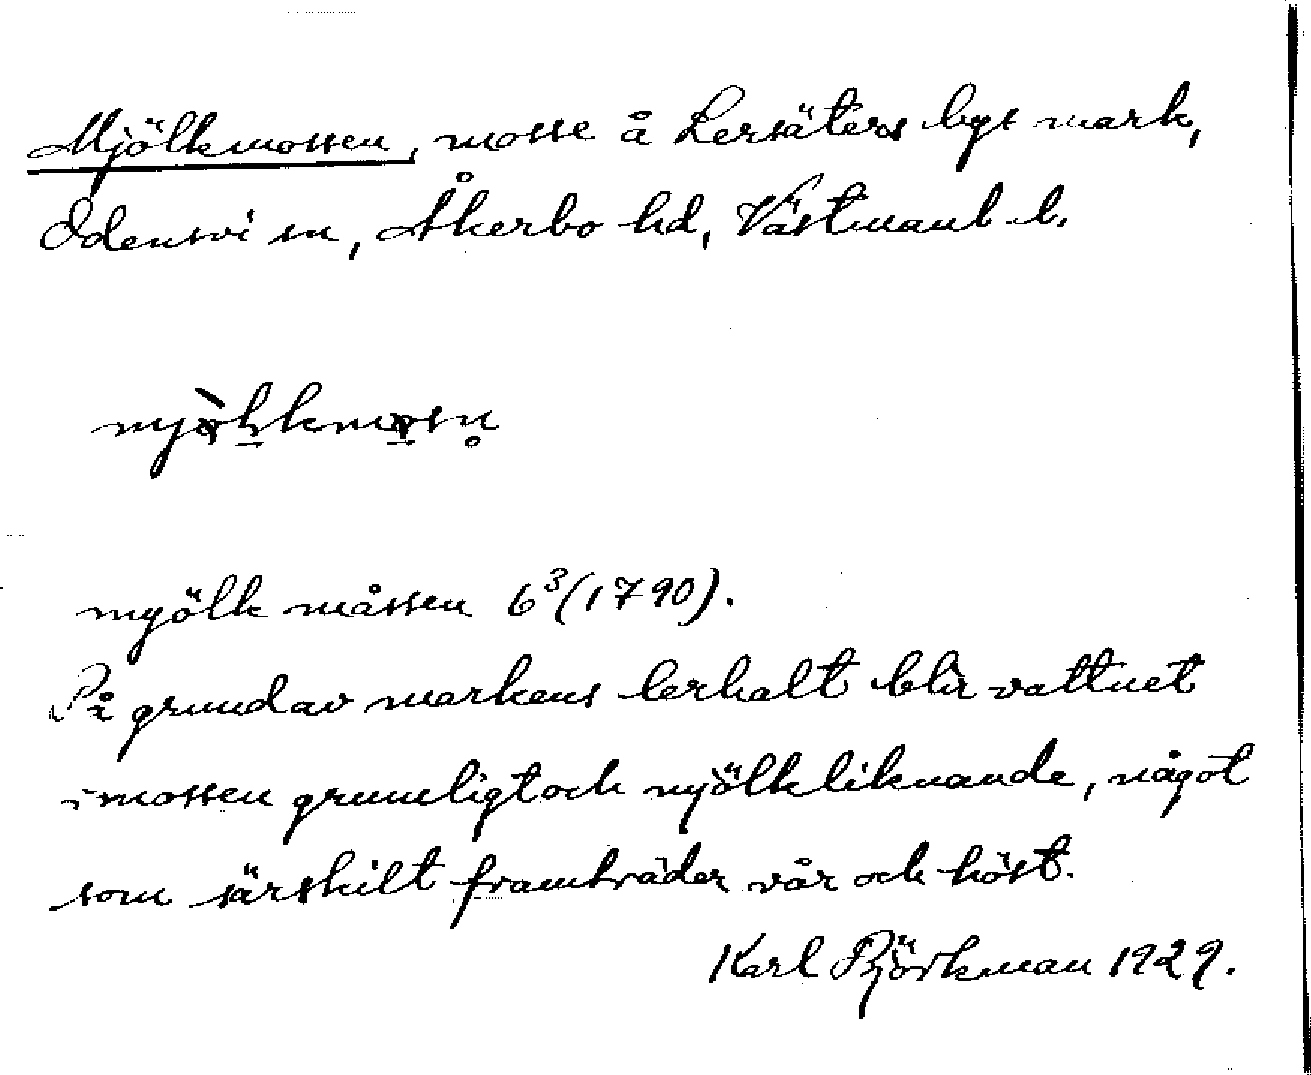 Mjölkmossen, mosse å Lersäters bys mark,
Odensvi sn, Åkerbo hd, Västmanl. l.
myölk måssen 6³(1790).
På grund av markens lerhalt blir vattnet
i mossen grumligt och mjölkliknande, något
som särskilt framträder vår och höst.
Karl Björkman 1929.